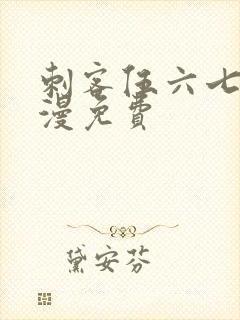 刺客伍六七
漫免費
黛安芬